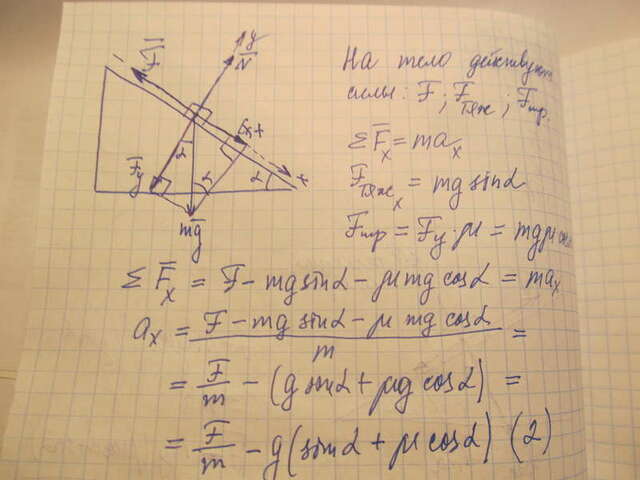 F̅
y
N̅
На тело действуют
силы: F̅; F̅тяж; F̅тр.
ΣF̅x = max
F̅y
α
F̅x
x
α
α
mg̅
Fтяжx = mg sinα
Fтр = Fy · μ = mgμ cosα
ΣF̅x = F̅ - mg sinα - μmg cosα = max
ax = (F̅ - mg sinα - μ mg cosα) / m =
= F̅/m - (g sinα + μg cosα) =
= F̅/m - g(sinα + μ cosα) (2)